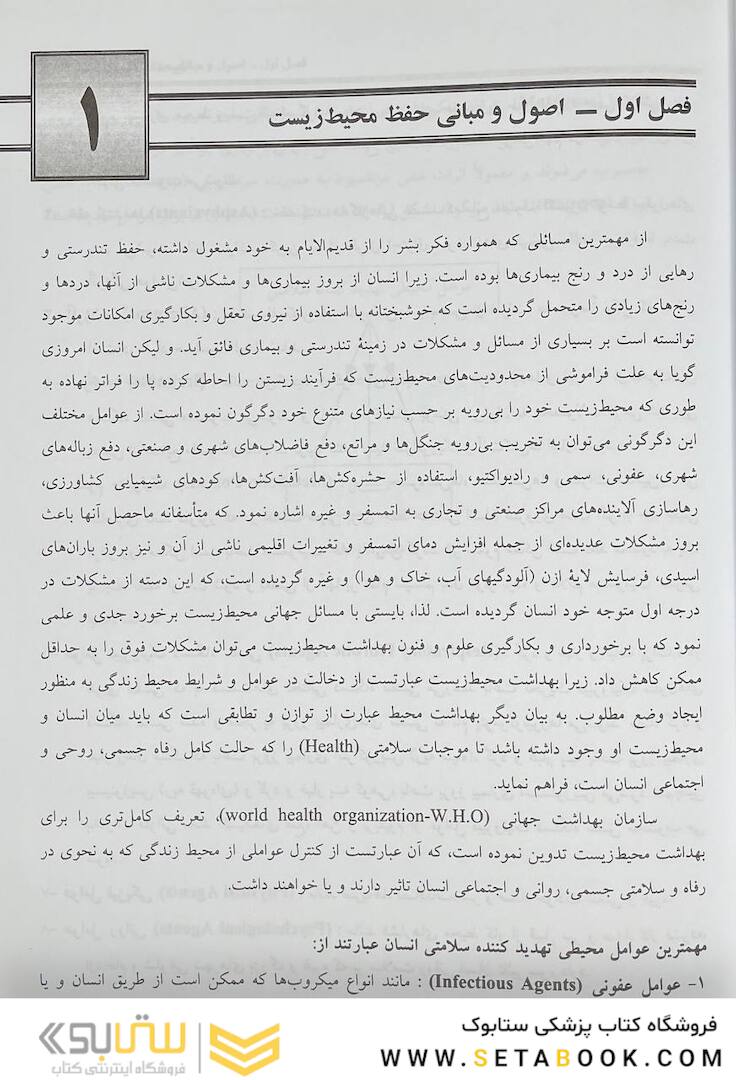 ۱
فصل اول – اصول و مبانی حفظ محیط‌زیست
از مهمترین مسائلی که همواره فکر بشر را از قدیم‌الایام به خود مشغول داشته، حفظ تندرستی و
رهایی از درد و رنج بیماری‌ها بوده است. زیرا انسان از بروز بیماری‌ها و مشکلات ناشی از آنها، دردها و
رنج‌های زیادی را متحمل گردیده است که خوشبختانه با استفاده از نیروی تعقل و بکارگیری امکانات موجود
توانسته است بر بسیاری از مسائل و مشکلات در زمینهٔ تندرستی و بیماری فائق آید. و لیکن انسان امروزی
گویا به علت فراموشی از محدودیت‌های محیط‌زیست که فرآیند زیستن را احاطه کرده پا را فراتر نهاده به
طوری که محیط‌زیست خود را بی‌رویه بر حسب نیازهای متنوع خود دگرگون نموده است. از عوامل مختلف
این دگرگونی می‌توان به تخریب بی‌رویه جنگل‌ها و مراتع، دفع فاضلاب‌های شهری و صنعتی، دفع زباله‌های
شهری، عفونی، سمی و رادیواکتیو، استفاده از حشره‌کش‌ها، آفت‌کش‌ها، کودهای شیمیایی کشاورزی،
رهاسازی آلاینده‌های مراکز صنعتی و تجاری به اتمسفر و غیره اشاره نمود. که متأسفانه ماحصل آنها باعث
بروز مشکلات عدیده‌ای از جمله افزایش دمای اتمسفر و تغییرات اقلیمی ناشی از آن و نیز بروز باران‌های
اسیدی، فرسایش لایهٔ ازن (آلودگیهای آب، خاک و هوا) و غیره گردیده است، که این دسته از مشکلات در
درجه اول متوجه خود انسان گردیده است. لذا، بایستی با مسائل جهانی محیط‌زیست برخورد جدی و علمی
نمود که با برخورداری و بکارگیری علوم و فنون بهداشت محیط‌زیست می‌توان مشکلات فوق را به حداقل
ممکن کاهش داد. زیرا بهداشت محیط‌زیست عبارتست از دخالت در عوامل و شرایط محیط زندگی به منظور
ایجاد وضع مطلوب. به بیان دیگر بهداشت محیط عبارت از توازن و تطابقی است که باید میان انسان و
محیط‌زیست او وجود داشته باشد تا موجبات سلامتی (Health) را که حالت کامل رفاه جسمی، روحی و
اجتماعی انسان است، فراهم نماید.
سازمان بهداشت جهانی (world health organization-W.H.O)، تعریف کامل‌تری را برای
بهداشت محیط‌زیست تدوین نموده است، که آن عبارتست از کنترل عواملی از محیط زندگی که به نحوی در
رفاه و سلامتی جسمی، روانی و اجتماعی انسان تاثیر دارند و یا خواهند داشت.
مهمترین عوامل محیطی تهدید کننده سلامتی انسان عبارتند از:
۱- عوامل عفونی (Infectious Agents) : مانند انواع میکروب‌ها که ممکن است از طریق انسان و یا
فروشگاه کتاب پزشکی ستابوک
WWW.SETABOOK.COM
ستابوک
فروشگاه اینترنتی کتاب